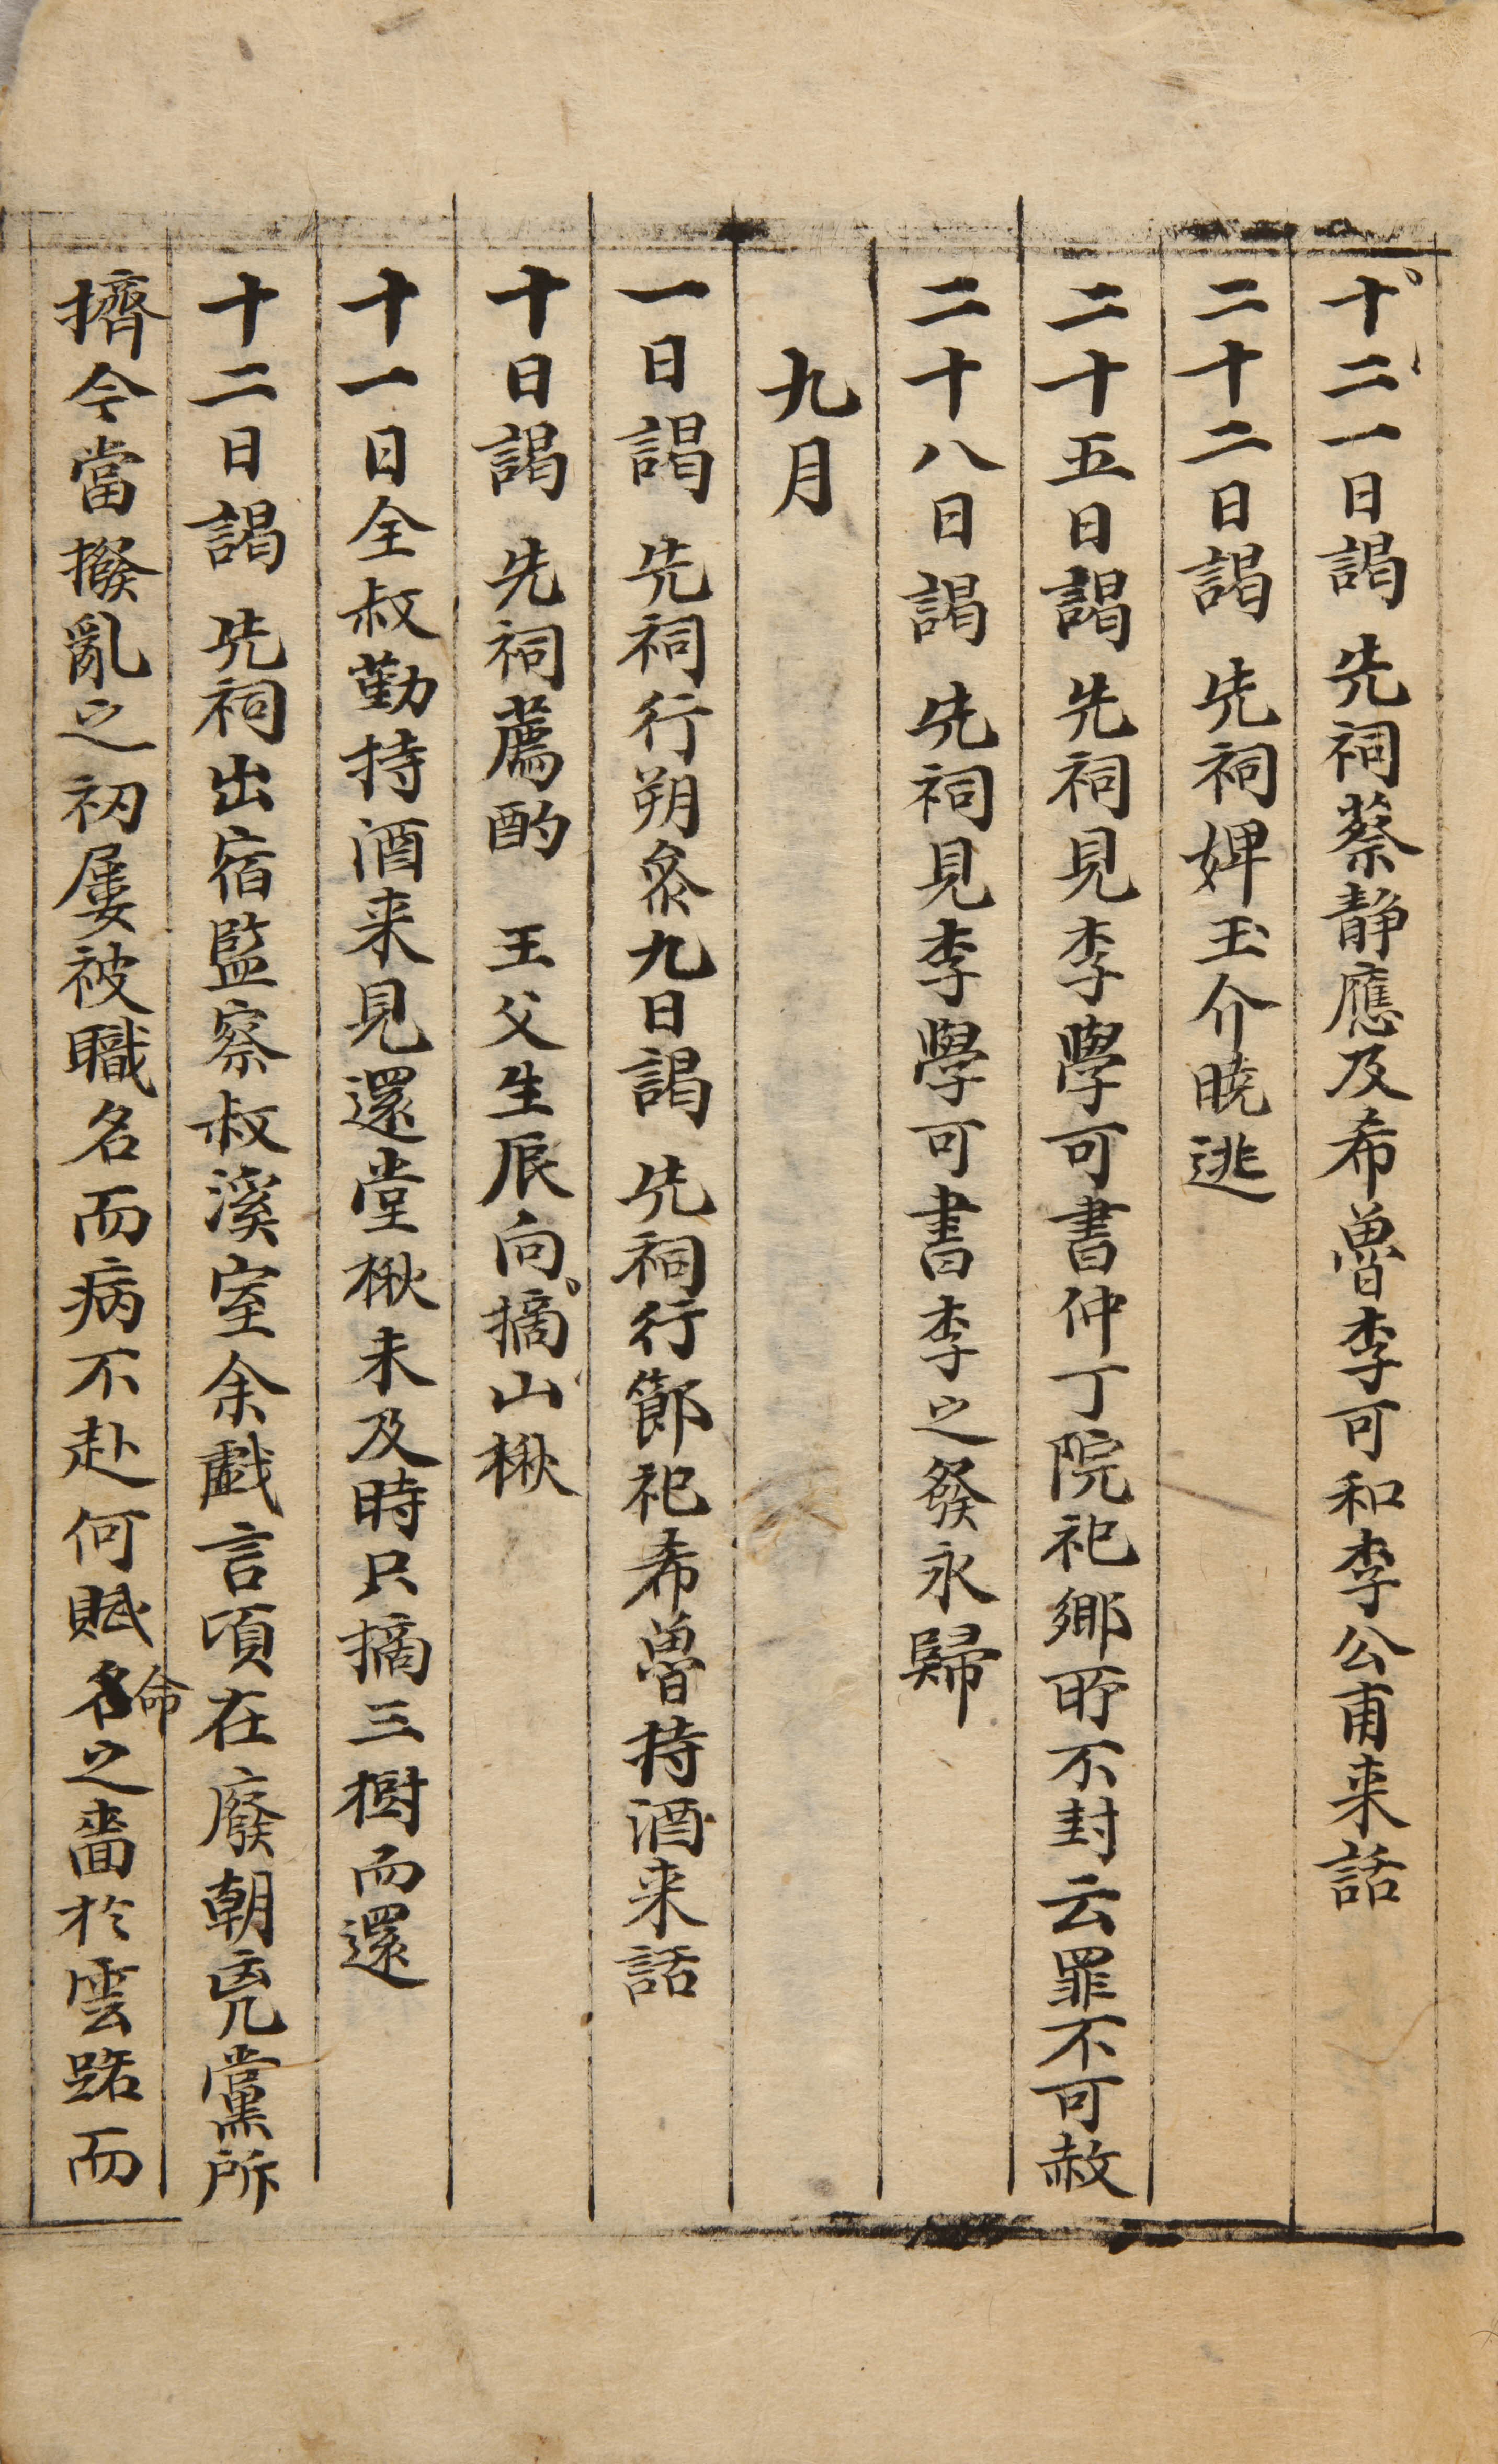 十二一日謁 先祠蔡静應及希魯李可和李公甫来話
二十二日謁 先祠婢玉介曉逃
二十五日謁 先祠見李學可書仲丁院祀鄕所不封云罪不可赦
二十八日謁 先祠見李學可書李之發永歸
九月
一日謁 先祠行朔奠九日謁 先祠行節祀希魯持酒来話
十日謁 先祠薦酌 王父生辰向摘山楸
十一日全叔勤持酒来見還堂楸未及時只摘三樹而還
十二日謁 先祠出宿監察叔溪室余戱言頃在廢朝兇黨所
擠今當撥亂之初屢被職名而病不赴何賦命之嗇於雲路而